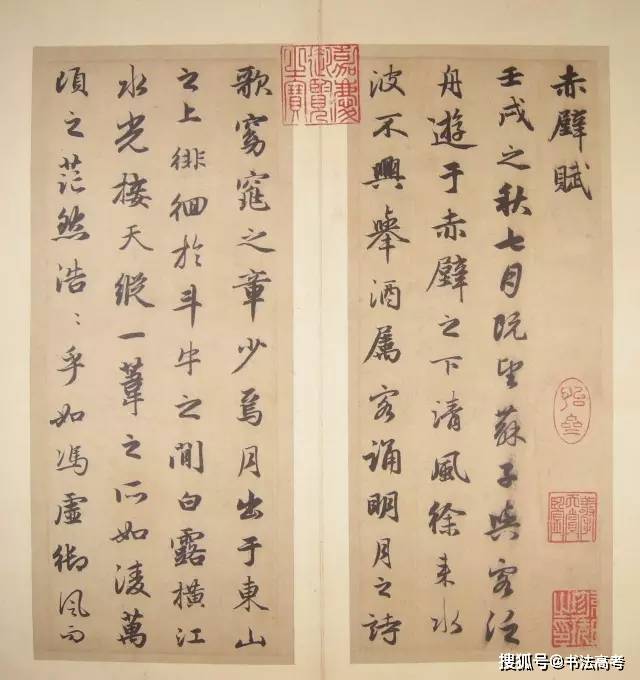 赤壁賦
壬戌之秋七月既望蘇子與客泛
舟遊于赤壁之下清風徐来水
波不興舉酒屬客誦明月之詩
歌窈窕之章少焉月出于東山
之上徘徊於斗牛之間白露橫江
水光接天縱一葦之所如凌萬
頃之茫然浩〻乎如馮虛御風而
嘉慶御覽之寶
搜狐号@书法高考